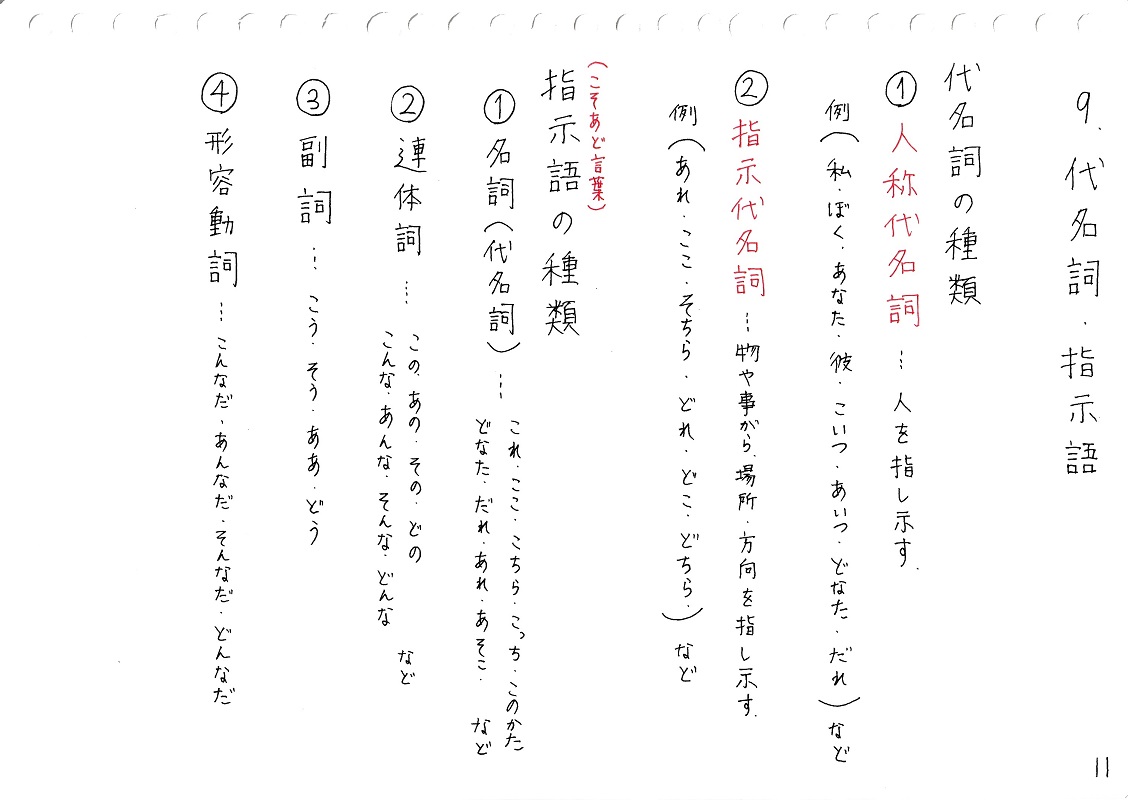 9. 代名詞・指示語
代名詞の種類
① 人称代名詞 … 人を指し示す.
例(私・ぼく・あなた・彼・こいつ・あいつ・どなた・だれ)など
② 指示代名詞 … 物や事がら・場所・方向を指し示す.
例(あれ・ここ・そちら・どれ・どこ・どちら・)など
(こそあど言葉)
指示語の種類
① 名詞(代名詞) … これ・ここ・こちら・こっち・このかた
どなた・だれ・あれ・あそこ・ など
② 連体詞 … この・あの・その・どの
こんな・あんな・そんな・どんな など
③ 副詞 … こう・そう・ああ・どう
④ 形容動詞 … こんなだ・あんなだ・そんなだ・どんなだ
11